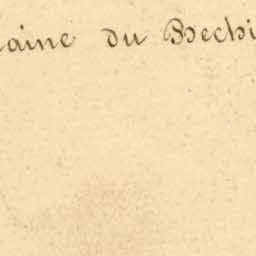 aine du Bechi